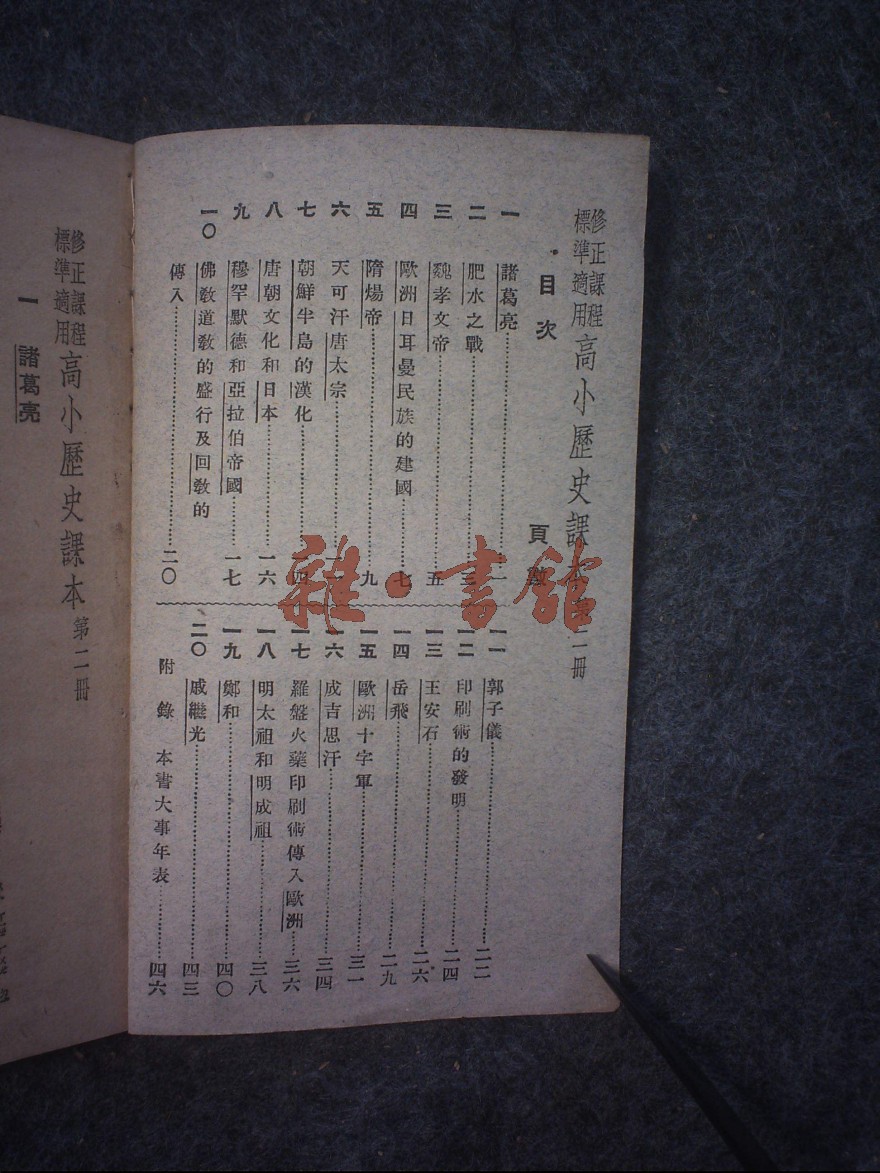 修正課程標準適用高小歷史課本第二冊
目次 頁數
一 諸葛亮…一
二 肥水之戰…三
三 魏孝文帝…五
四 歐洲日耳曼民族的建國…七
五 隋煬帝…九
六 天可汗唐太宗…一一
七 朝鮮半島的漢化…一四
八 唐朝文化和日本…一六
九 穆罕默德和亞拉伯帝國…一七
一〇 佛教道教的盛行及回教的
傳入…二〇
一一 郭子儀…二二
一二 印刷術的發明…二四
一三 王安石…二六
一四 岳飛…二九
一五 歐洲十字軍…三一
一六 成吉思汗…三四
一七 羅盤火藥印刷術傳入歐洲…三六
一八 明太祖和明成祖…三八
一九 鄭和…四〇
二〇 戚繼光…四三
附錄 本書大事年表…四六
修正課程標準適用高小歷史課本第二冊
一 諸葛亮
雜·書館